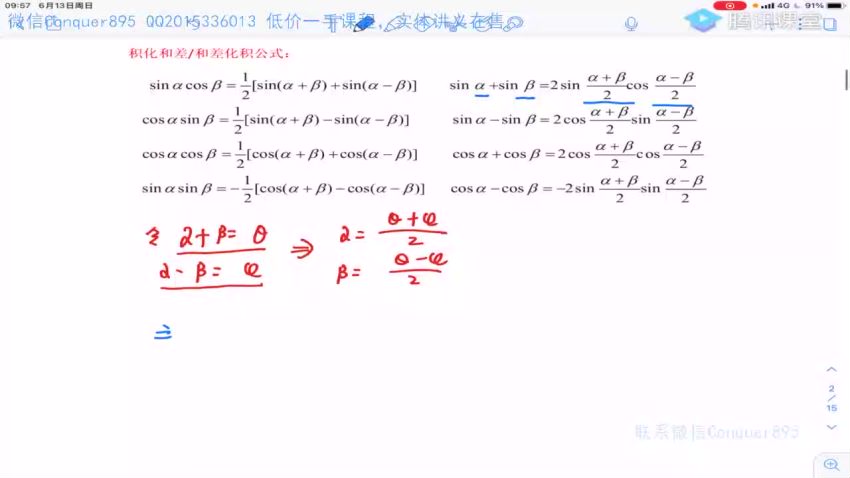 09:57 6月13日周日 4G 91%
微信Conquer895 QQ2015336013 低价一手课程，实体讲义在售。
腾讯课堂
积化和差/和差化积公式：
sin α cos β = 1/2[sin(α + β) + sin(α − β)] sin α + sin β = 2 sin (α + β)/2 cos (α − β)/2
cos α sin β = 1/2[sin(α + β) − sin(α − β)] sin α − sin β = 2 cos (α + β)/2 sin (α − β)/2
cos α cos β = 1/2[cos(α + β) + cos(α − β)] cos α + cos β = 2 cos (α + β)/2 cos (α − β)/2
sin α sin β = −1/2[cos(α + β) − cos(α − β)] cos α − cos β = −2 sin (α + β)/2 sin (α − β)/2
令 α + β = θ ⇒ α = (θ + φ)/2
α − β = φ β = (θ − φ)/2
⇒
2
/
15
联系微信Conquer895